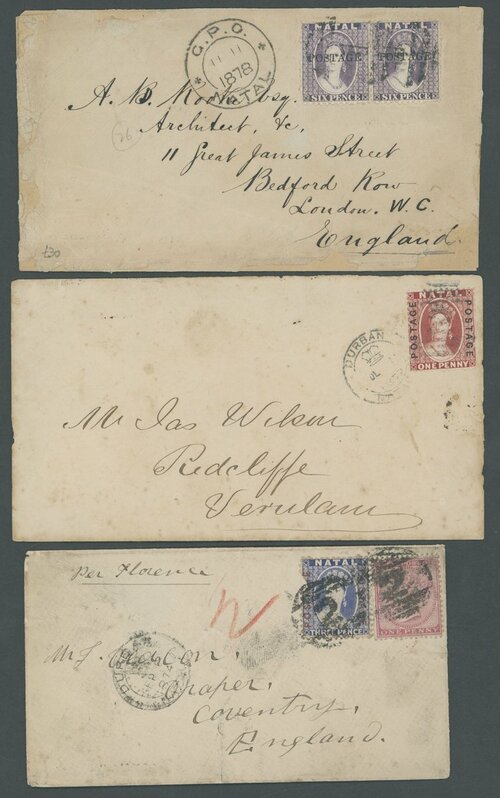 G.P.O.
11 11
1878
NATAL
NATAL NATAL
POSTAGE POSTAGE
SIXPENCE SIXPENCE
A. B. Esq.
Architect, &c,
11 Great James Street
Bedford Row
London. W.C.
England.
26
£30
NATAL
POSTAGE POSTAGE
ONE PENNY
DURBAN
Mr Jas Wilson
Redcliffe
Verulam
Per Florence
NATAL
THREE PENCE
ONE PENNY
Mr
Draper,
Coventry,
England.